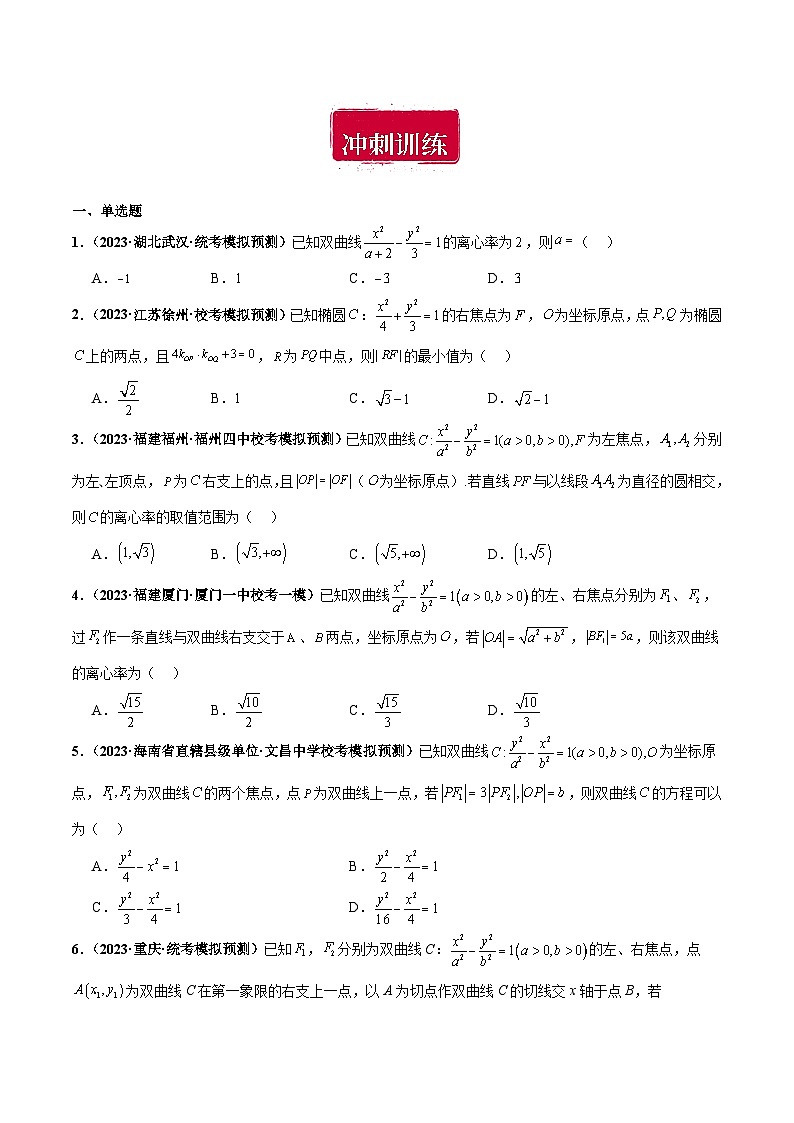 冲刺训练
一、单选题
1.（2023·湖北武汉·统考模拟预测）已知双曲线$\frac{x^2}{a+2}-\frac{y^2}{3}=1$的离心率为2，则$a=$（ ）
A．$-1$ B．1 C．$-3$ D．3
2.（2023·江苏徐州·校考模拟预测）已知椭圆$C:\frac{x^2}{4}+\frac{y^2}{3}=1$的右焦点为$F$，$O$为坐标原点，点$P,Q$为椭圆
$C$上的两点，且$4k_{OP}\cdot k_{OQ}+3=0$，$R$为$PQ$中点，则$|RF|$的最小值为（ ）
A．$\frac{\sqrt{2}}{2}$ B．1 C．$\sqrt{3}-1$ D．$\sqrt{2}-1$
3.（2023·福建福州·福州四中校考模拟预测）已知双曲线$C:\frac{x^2}{a^2}-\frac{y^2}{b^2}=1(a>0,b>0),F$为左焦点，$A_1,A_2$分别
为左、左顶点，$P$为$C$右支上的点，且$|OP|=|OF|$（$O$为坐标原点）.若直线$PF$与以线段$A_1A_2$为直径的圆相交，
则$C$的离心率的取值范围为（ ）
A．$(1,\sqrt{3})$ B．$(\sqrt{3},+\infty)$ C．$(\sqrt{5},+\infty)$ D．$(1,\sqrt{5})$
4.（2023·福建厦门·厦门一中校考一模）已知双曲线$\frac{x^2}{a^2}-\frac{y^2}{b^2}=1(a>0,b>0)$的左、右焦点分别为$F_1$、$F_2$，
过$F_2$作一条直线与双曲线右支交于A、$B$两点，坐标原点为$O$，若$|OA|=\sqrt{a^2+b^2}$，$|BF_1|=5a$，则该双曲线
的离心率为（ ）
A．$\frac{\sqrt{15}}{2}$ B．$\frac{\sqrt{10}}{2}$ C．$\frac{\sqrt{15}}{3}$ D．$\frac{\sqrt{10}}{3}$
5.（2023·海南省直辖县级单位·文昌中学校考模拟预测）已知双曲线$C:\frac{y^2}{a^2}-\frac{x^2}{b^2}=1(a>0,b>0),O$为坐标原
点，$F_1,F_2$为双曲线$C$的两个焦点，点$P$为双曲线上一点，若$|PF_1|=3|PF_2|,|OP|=b$，则双曲线$C$的方程可以
为（ ）
A．$\frac{y^2}{4}-x^2=1$ B．$\frac{y^2}{2}-\frac{x^2}{4}=1$
C．$\frac{y^2}{3}-\frac{x^2}{4}=1$ D．$\frac{y^2}{16}-\frac{x^2}{4}=1$
6.（2023·重庆·统考模拟预测）已知$F_1$，$F_2$分别为双曲线$C:\frac{x^2}{a^2}-\frac{y^2}{b^2}=1(a>0,b>0)$的左、右焦点，点
$A(x_1,y_1)$为双曲线$C$在第一象限的右支上一点，以$A$为切点作双曲线$C$的切线交$x$轴于点$B$，若